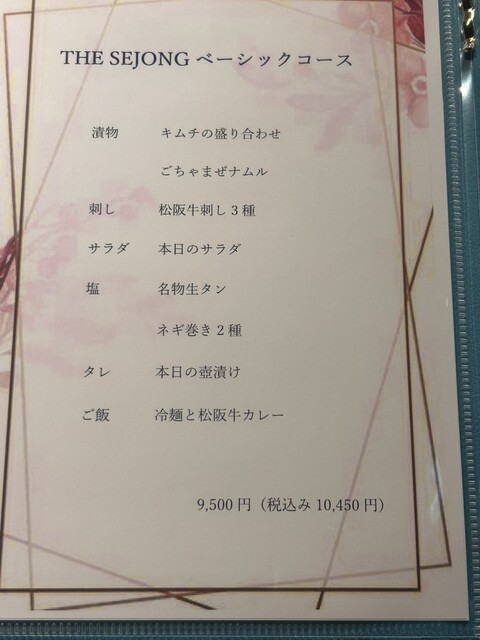 THE SEJONG ベーシックコース
漬物 キムチの盛り合わせ
ごちゃまぜナムル
刺し 松阪牛刺し3種
サラダ 本日のサラダ
塩 名物生タン
ネギ巻き2種
タレ 本日の壺漬け
ご飯 冷麺と松阪牛カレー
9,500円（税込み 10,450円）